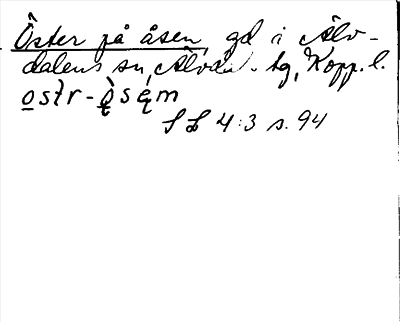 Öster på åsen, gd i Älv-
dalens sn, Älvdal. tg, Kopp. l.
ostr - òsęm
S L 4:3 s. 94